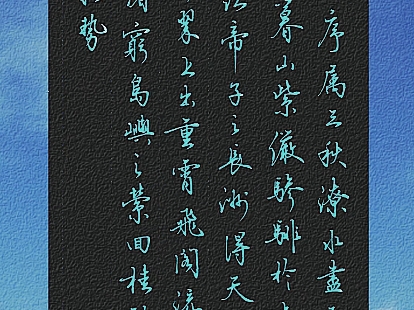 序属三秋潦水盡
暮山紫儼驂騑於
帝子之長洲得天
翠上出重霄飛閣流
窮島嶼之縈回桂
勢